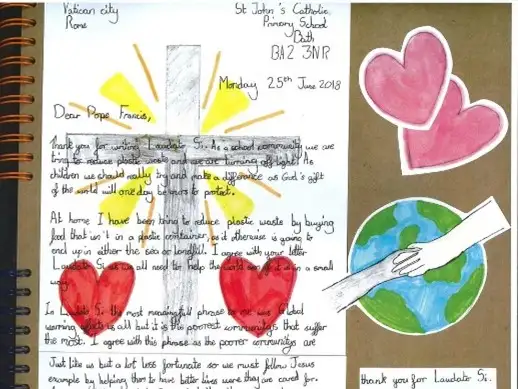 Vatican city
Rome
St John's Catholic
Primary School
Bath
BA2 3NR
Monday 25th June 2018
Dear Pope Francis,
Thank you for writing Laudate Si. As a school community we are
trying to reduce plastic waste and we are turning off lights. As
children we should really try and make a difference as God's gift
of the world will one day be ours to protect.
At home I have been trying to reduce plastic waste by buying
food that isn't in a plastic container, as it otherwise is going to
end up in either the sea or landfill. I agree with your letter
Laudate Si as we all need to help the world even if it is in a small
way.
In Laudate Si the most meaningfull phrase to me was Global
warming affects us all but it is the poorest communitys that suffer
the most. I agree with this phrase as the poorer communitys are
Just like us but a lot less fortunate so we must follow Jesus
example by helping them to have better lives were they are cared for.
thank you for Laudate Si.